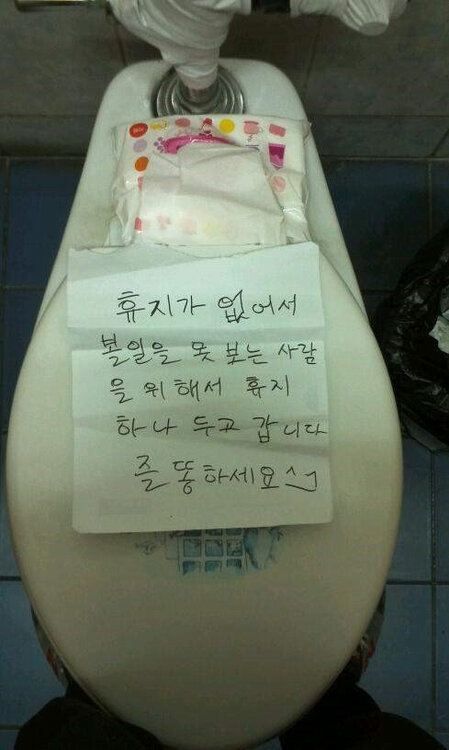 휴지가 없어서
볼일을 못 보는 사람
을 위해서 휴지
하나 두고 갑니다
즐똥하세요^^